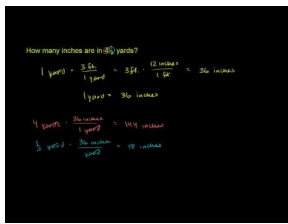 How many inches are in 4½ yards?
1 yard = 3 ft. / 1 yard = 3 ft. · 12 inches / 1 ft = 36 inches
1 yard = 36 inches
4 yards · 36 inches / 1 yard = 144 inches
½ yard · 36 inches / yard = 18 inches